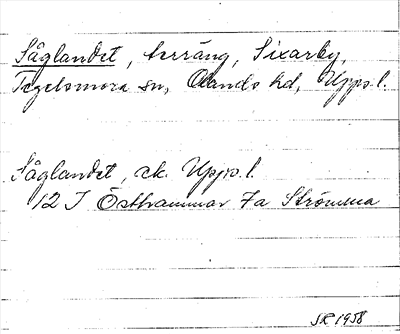 Såglandet, terräng, Sixarby,
Tegelsmora sn, Olands hd, Upps. l.
Såglandet, ek. Upps. l.
12 I Östhammar 7a Strömma
SR 1958